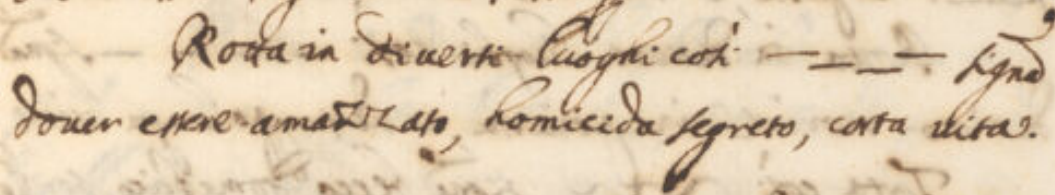 Rotta in diversi luoghi così — — — — signa
dover essere amazzato, homicida segreto, corta vita.